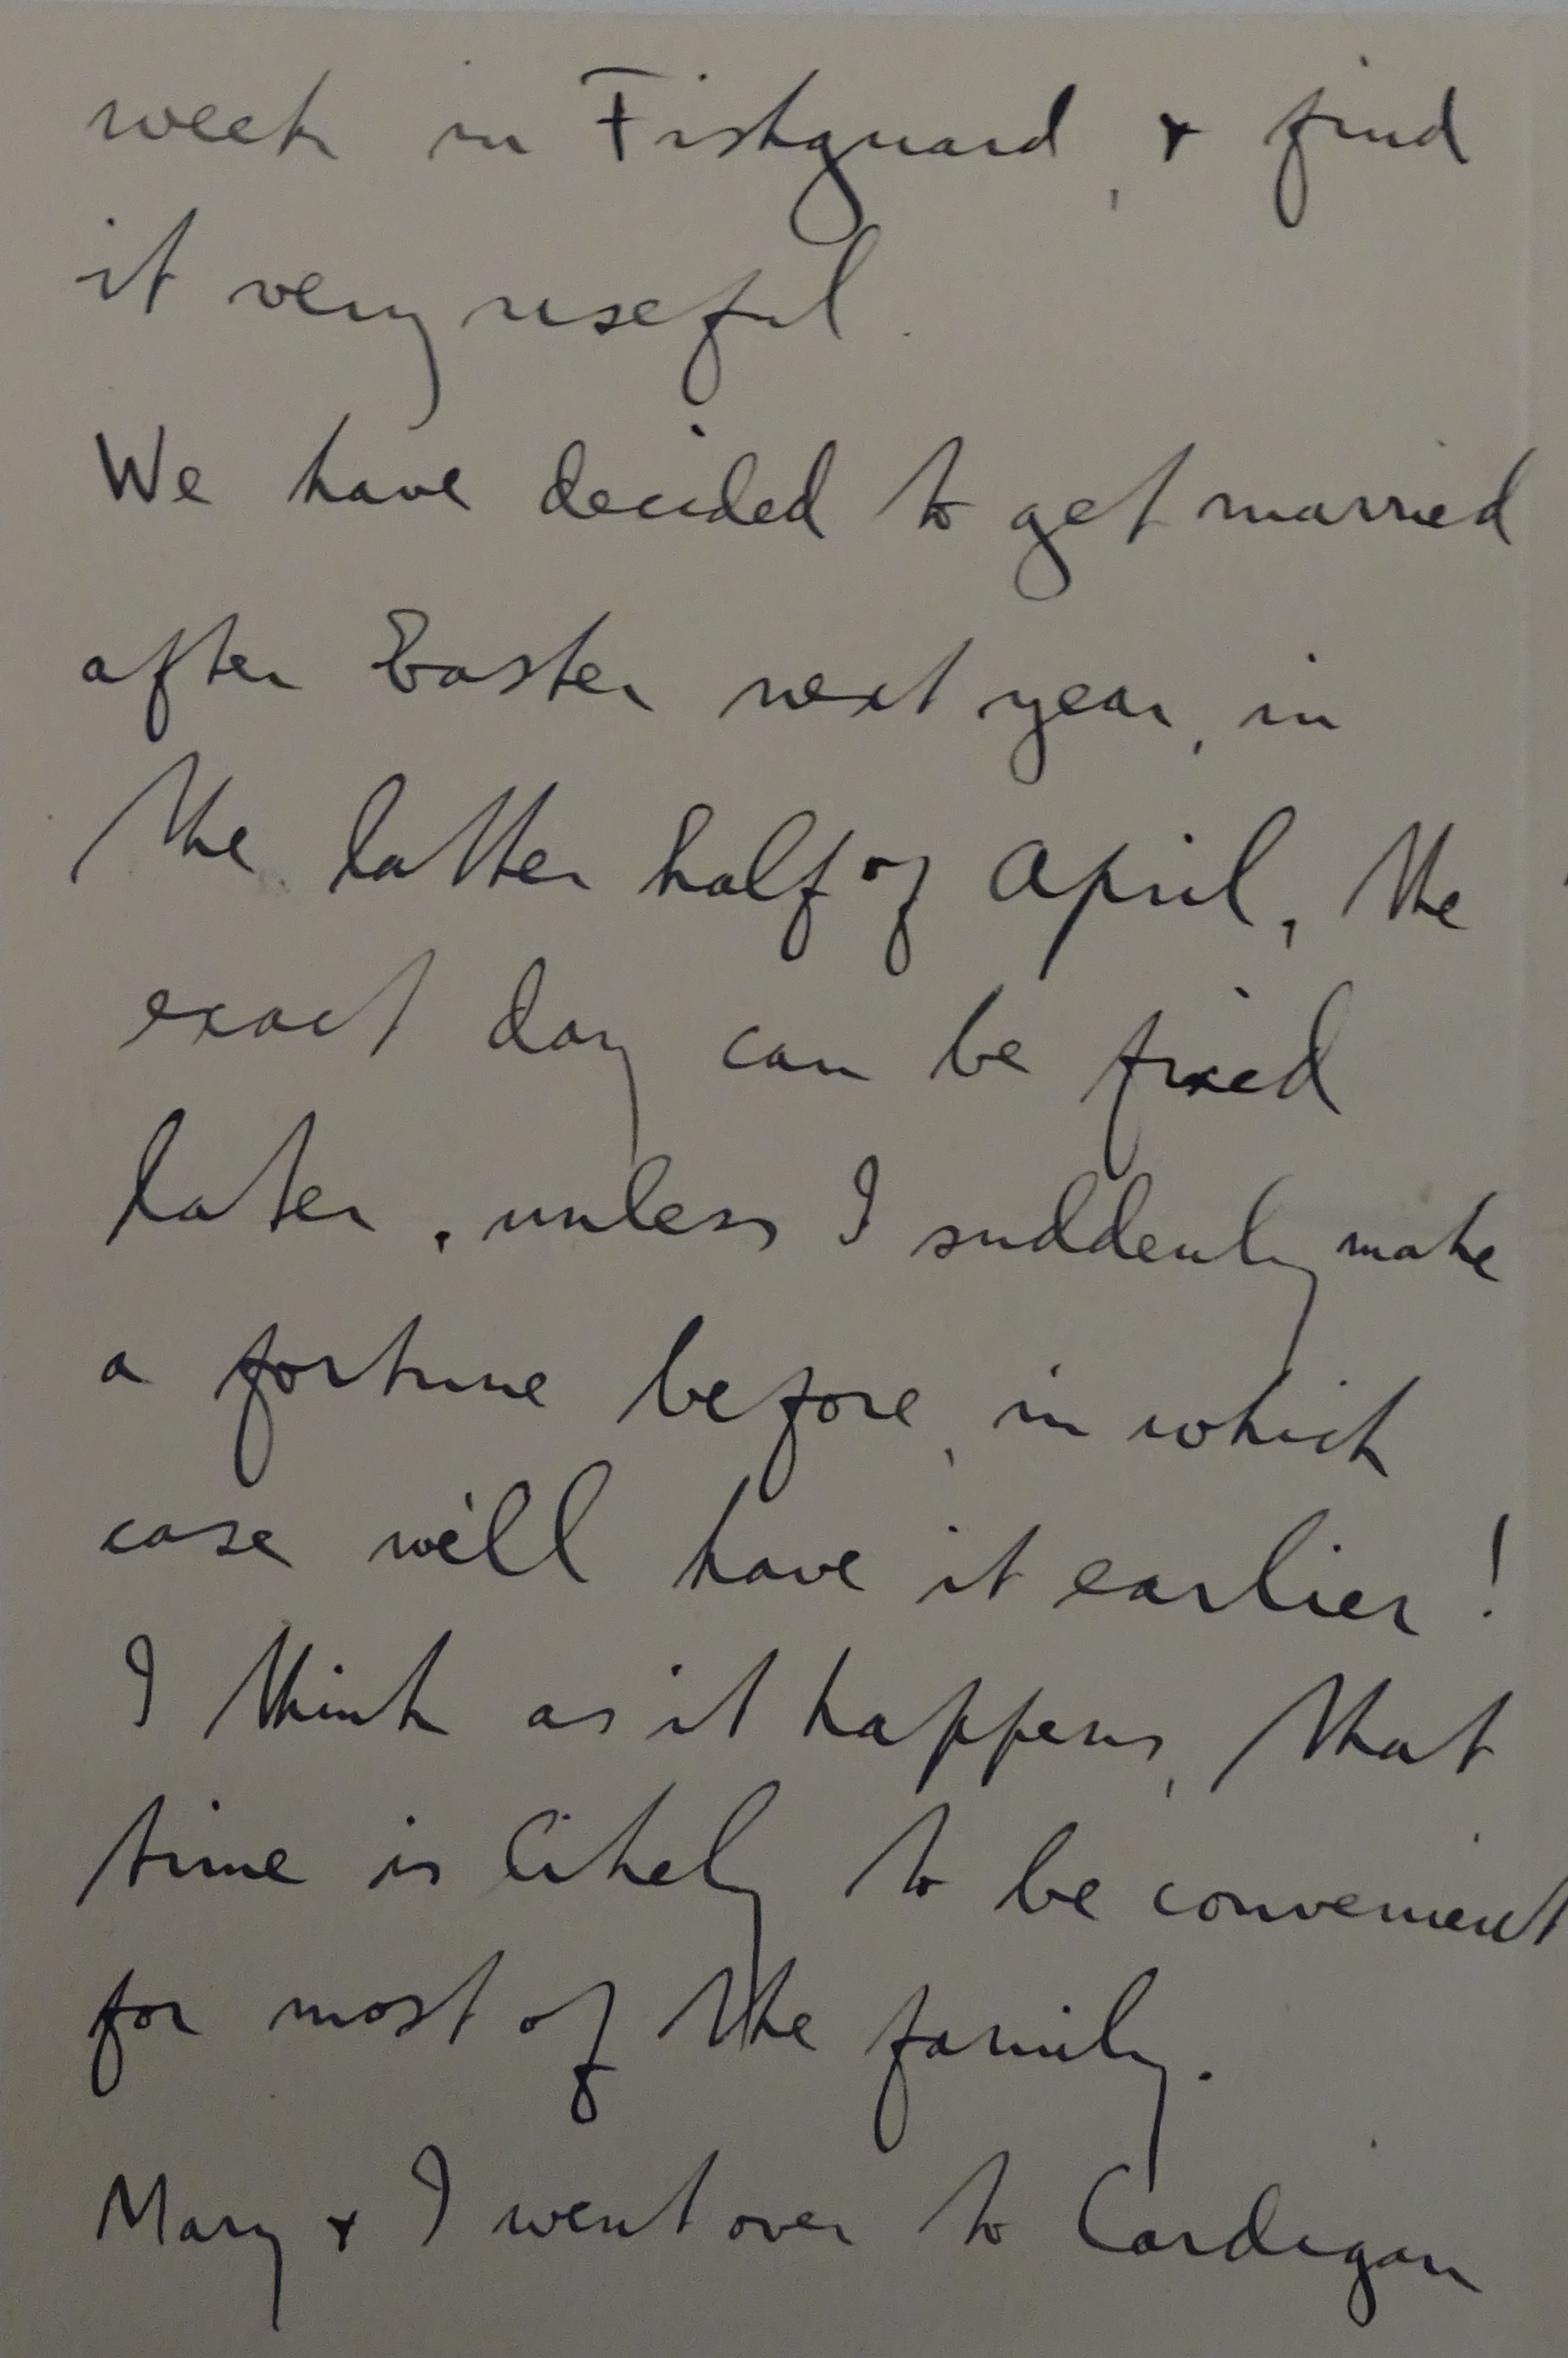 week in Fishguard, & find
it very useful.
We have decided to get married
after Easter next year, in
the latter half of April, the
exact day can be fixed
later, unless I suddenly make
a fortune before, in which
case we'll have it earlier!
I think as it happens, that
time is likely to be convenient
for most of the family.
Mary & I went over to Cardigan